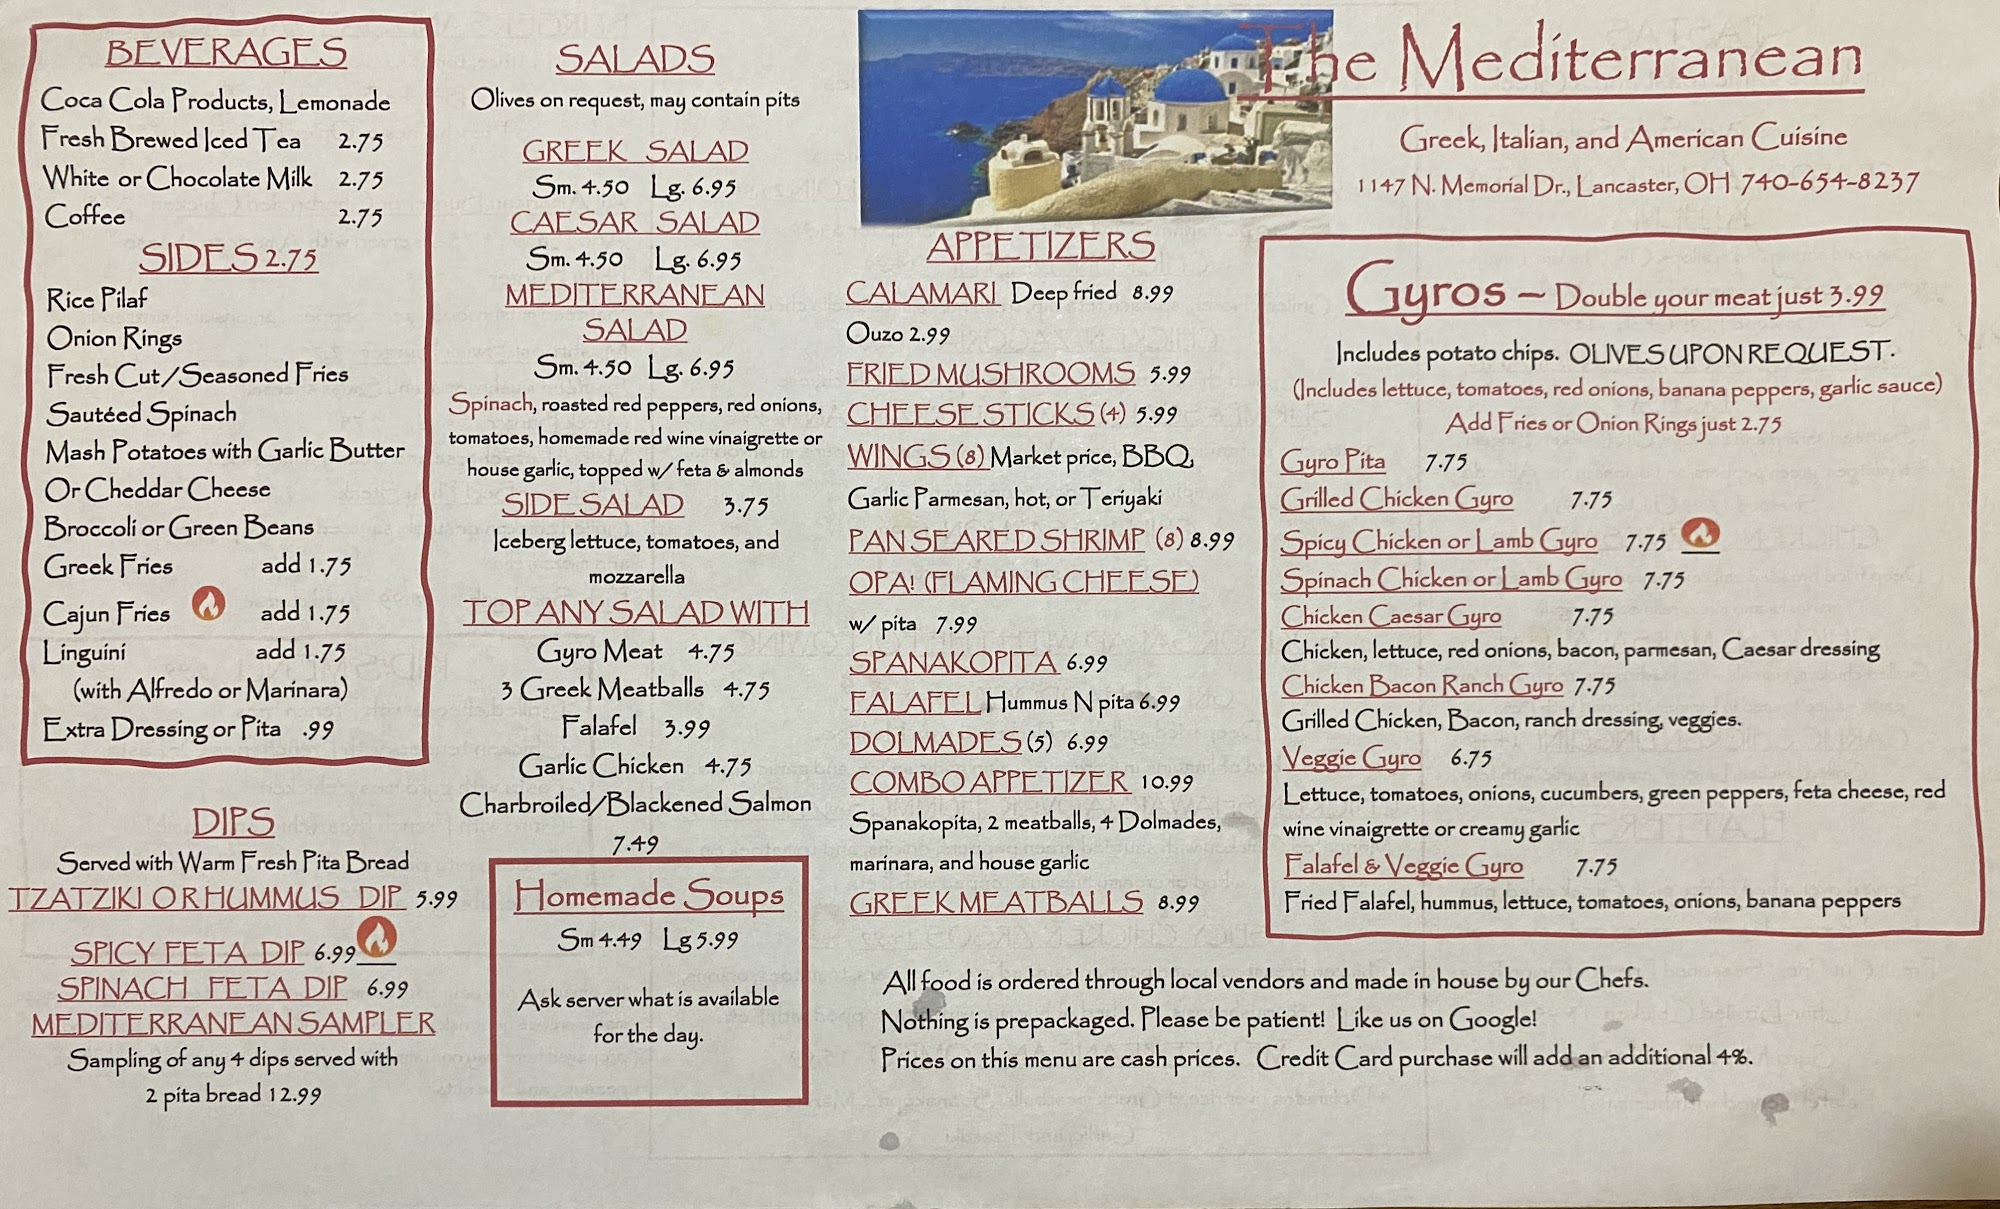 BEVERAGES
Coca Cola Products, Lemonade
Fresh Brewed Iced Tea 2.75
White or Chocolate Milk 2.75
Coffee 2.75
SIDES 2.75
Rice Pilaf
Onion Rings
Fresh Cut/Seasoned Fries
Sautéed Spinach
Mash Potatoes with Garlic Butter
Or Cheddar Cheese
Broccoli or Green Beans
Greek Fries add 1.75
Cajun Fries add 1.75
Linguini add 1.75
(with Alfredo or Marinara)
Extra Dressing or Pita .99
DIPS
Served with Warm Fresh Pita Bread
TZATZIKI OR HUMMUS DIP 5.99
SPICY FETA DIP 6.99
SPINACH FETA DIP 6.99
MEDITERRANEAN SAMPLER
Sampling of any 4 dips served with
2 pita bread 12.99
SALADS
Olives on request, may contain pits
GREEK SALAD
Sm. 4.50 Lg. 6.95
CAESAR SALAD
Sm. 4.50 Lg. 6.95
MEDITERRANEAN
SALAD
Sm. 4.50 Lg. 6.95
Spinach, roasted red peppers, red onions,
tomatoes, homemade red wine vinaigrette or
house garlic, topped w/ feta & almonds
SIDE SALAD 3.75
Iceberg lettuce, tomatoes, and
mozzarella
TOP ANY SALAD WITH
Gyro Meat 4.75
3 Greek Meatballs 4.75
Falafel 3.99
Garlic Chicken 4.75
Charbroiled/Blackened Salmon
7.49
Homemade Soups
Sm 4.49 Lg 5.99
Ask server what is available
for the day.
APPETIZERS
CALAMARI Deep fried 8.99
Ouzo 2.99
FRIED MUSHROOMS 5.99
CHEESE STICKS (4) 5.99
WINGS (8) Market price, BBQ,
Garlic Parmesan, hot, or Teriyaki
PAN SEARED SHRIMP (8) 8.99
OPA! (FLAMING CHEESE)
w/ pita 7.99
SPANAKOPITA 6.99
FALAFEL Hummus N pita 6.99
DOLMADES (5) 6.99
COMBO APPETIZER 10.99
Spanakopita, 2 meatballs, 4 Dolmades,
marinara, and house garlic
GREEK MEATBALLS 8.99
The Mediterranean
Greek, Italian, and American Cuisine
1147 N. Memorial Dr., Lancaster, OH 740-654-8237
Gyros ~ Double your meat just 3.99
Includes potato chips. OLIVES UPON REQUEST.
(Includes lettuce, tomatoes, red onions, banana peppers, garlic sauce)
Add Fries or Onion Rings just 2.75
Gyro Pita 7.75
Grilled Chicken Gyro 7.75
Spicy Chicken or Lamb Gyro 7.75
Spinach Chicken or Lamb Gyro 7.75
Chicken Caesar Gyro 7.75
Chicken, lettuce, red onions, bacon, parmesan, Caesar dressing
Chicken Bacon Ranch Gyro 7.75
Grilled Chicken, Bacon, ranch dressing, veggies.
Veggie Gyro 6.75
Lettuce, tomatoes, onions, cucumbers, green peppers, feta cheese, red
wine vinaigrette or creamy garlic
Falafel & Veggie Gyro 7.75
Fried Falafel, hummus, lettuce, tomatoes, onions, banana peppers
All food is ordered through local vendors and made in house by our Chefs.
Nothing is prepackaged. Please be patient! Like us on Google!
Prices on this menu are cash prices. Credit Card purchase will add an additional 4%.